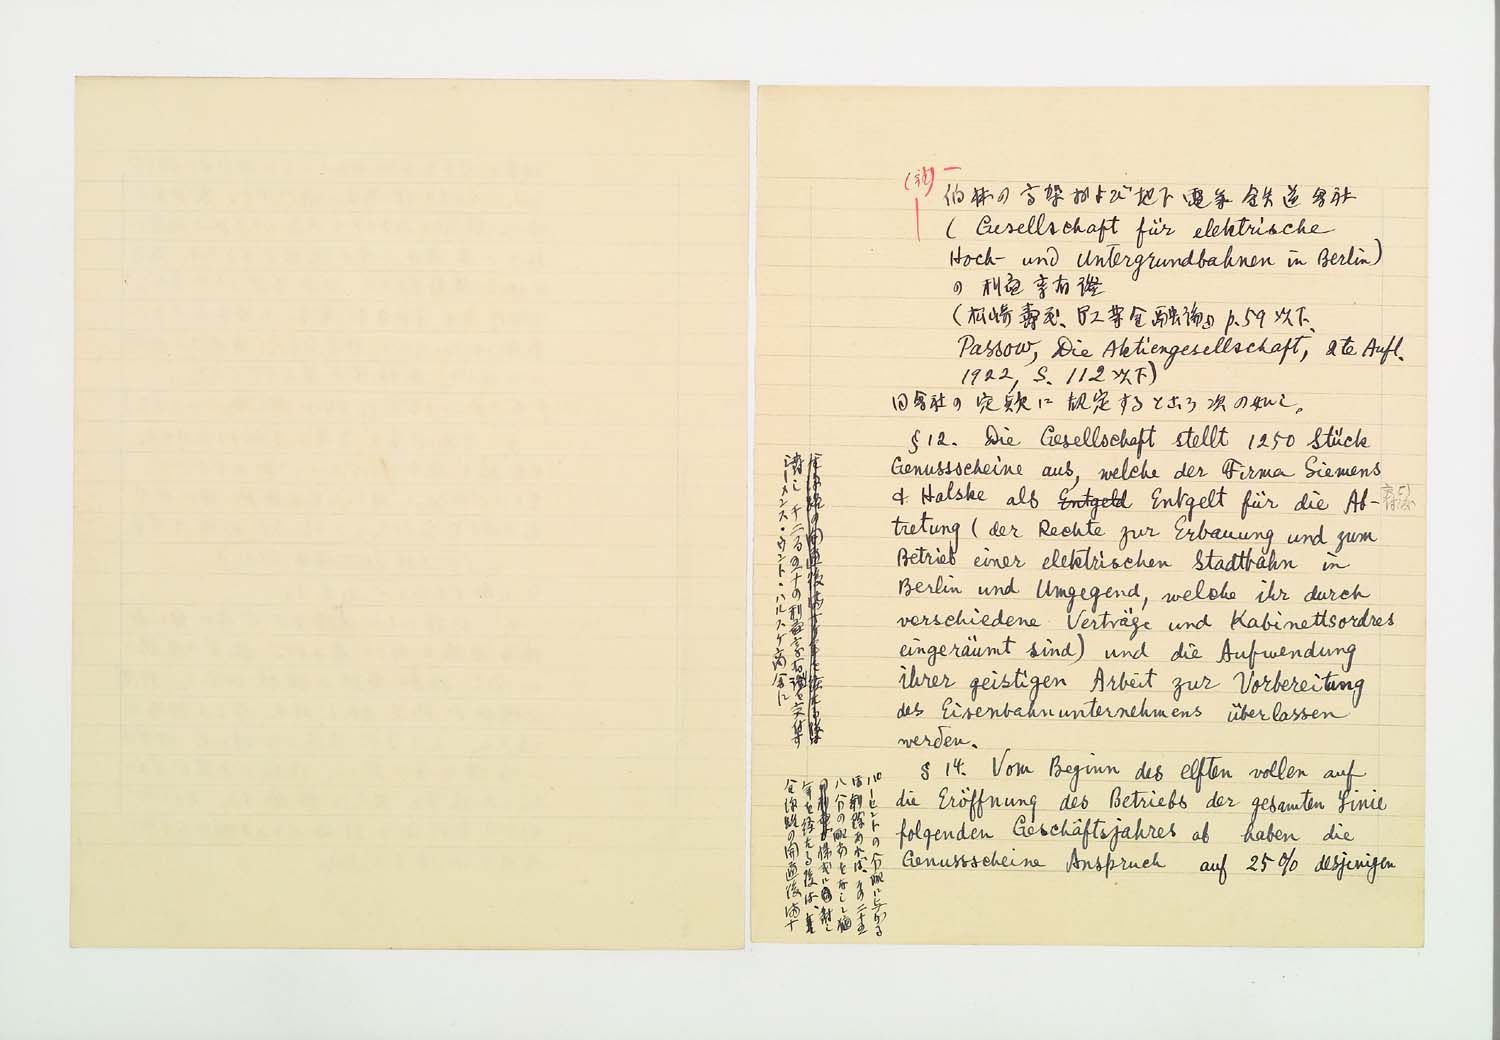 (註)
伯林の高架および地下電気鉄道会社
(Gesellschaft für elektrische
Hoch- und Untergrundbahnen in Berlin)
の利益享有證
(松崎壽、商工業金融論 p.59以下、
Passow, Die Aktiengesellschaft, 2te Aufl.
1922, S. 112以下)
同会社の定款に規定するところ次の如し。
§12. Die Gesellschaft stellt 1250 Stück
Genussscheine aus, welche der Firma Siemens
& Halske als Entgeld Entgelt für die Ab-
tretung (der Rechte zur Erbauung und zum
Betrieb einer elektrischen Stadtbahn in
Berlin und Umgegend, welche ihr durch
verschiedene Verträge und Kabinettsordres
eingeräumt sind) und die Aufwendung
ihrer geistigen Arbeit zur Vorbereitung
des Eisenbahnunternehmens überlassen
werden.
§ 14. Vom Beginn des elften vollen auf
die Eröffnung des Betriebs der gesamten Linie
folgenden Geschäftsjahres ab haben die
Genussscheine Anspruch auf 25% desjenigen
シーメンス・ウント・ハルスケ商会に
対し千二百五十の利益享有證を交付
全線路の開通後満十
年を経たる後は、
八分の配当をなし
ほ剰余あれば、その二十五
パーセントの分配に与かる